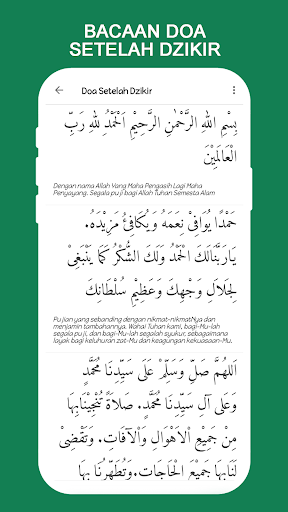 BACAAN DOA
SETELAH DZIKIR
Doa Setelah Dzikir
بِسْمِ اللهِ الرَّحْمٰنِ الرَّحِيْمِ اَلْحَمْدُ لِلهِ رَبِّ
الْعَالَمِيْنَ
Dengan nama Allah Yang Maha Pengasih Lagi Maha
Penyayang. Segala puji bagi Allah Tuhan Semesta Alam
حَمْدًا يُوَافِيْ نِعَمَهُ وَيُكَافِئُ مَزِيْدَهُ.
يَارَبَّنَالَكَ الْحَمْدُ وَلَكَ الشُّكْرُ كَمَا يَنْبَغِيْ
لِجَلَالِ وَجْهِكَ وَعَظِيْمِ سُلْطَانِكَ
Pujian yang sebanding dengan nikmat-nikmatNya dan
menjamin tambahannya. Wahai Tuhan kami, bagi-Mu-lah
segala puji, dan bagi-Mu-lah segalah syukur, sebagaimana
layak bagi keluhuran zat-Mu dan keagungan kekuasaan-Mu.
اَللهُمَّ صَلِّ وَسَلِّمْ عَلَى سَيِّدِنَا مُحَمَّدٍ
وَعَلَى آلِ سَيِّدِنَا مُحَمَّدٍ. صَلَاةً تُنْجِيْنَابِهَا
مِنْ جَمِيْعِ الْاَهْوَالِ وَالْآفَاتِ. وَتَقْضِيْ
لَنَابِهَا جَمِيْعَ الْحَاجَاتِ.وَتُطَهِّرُنَا بِهَا